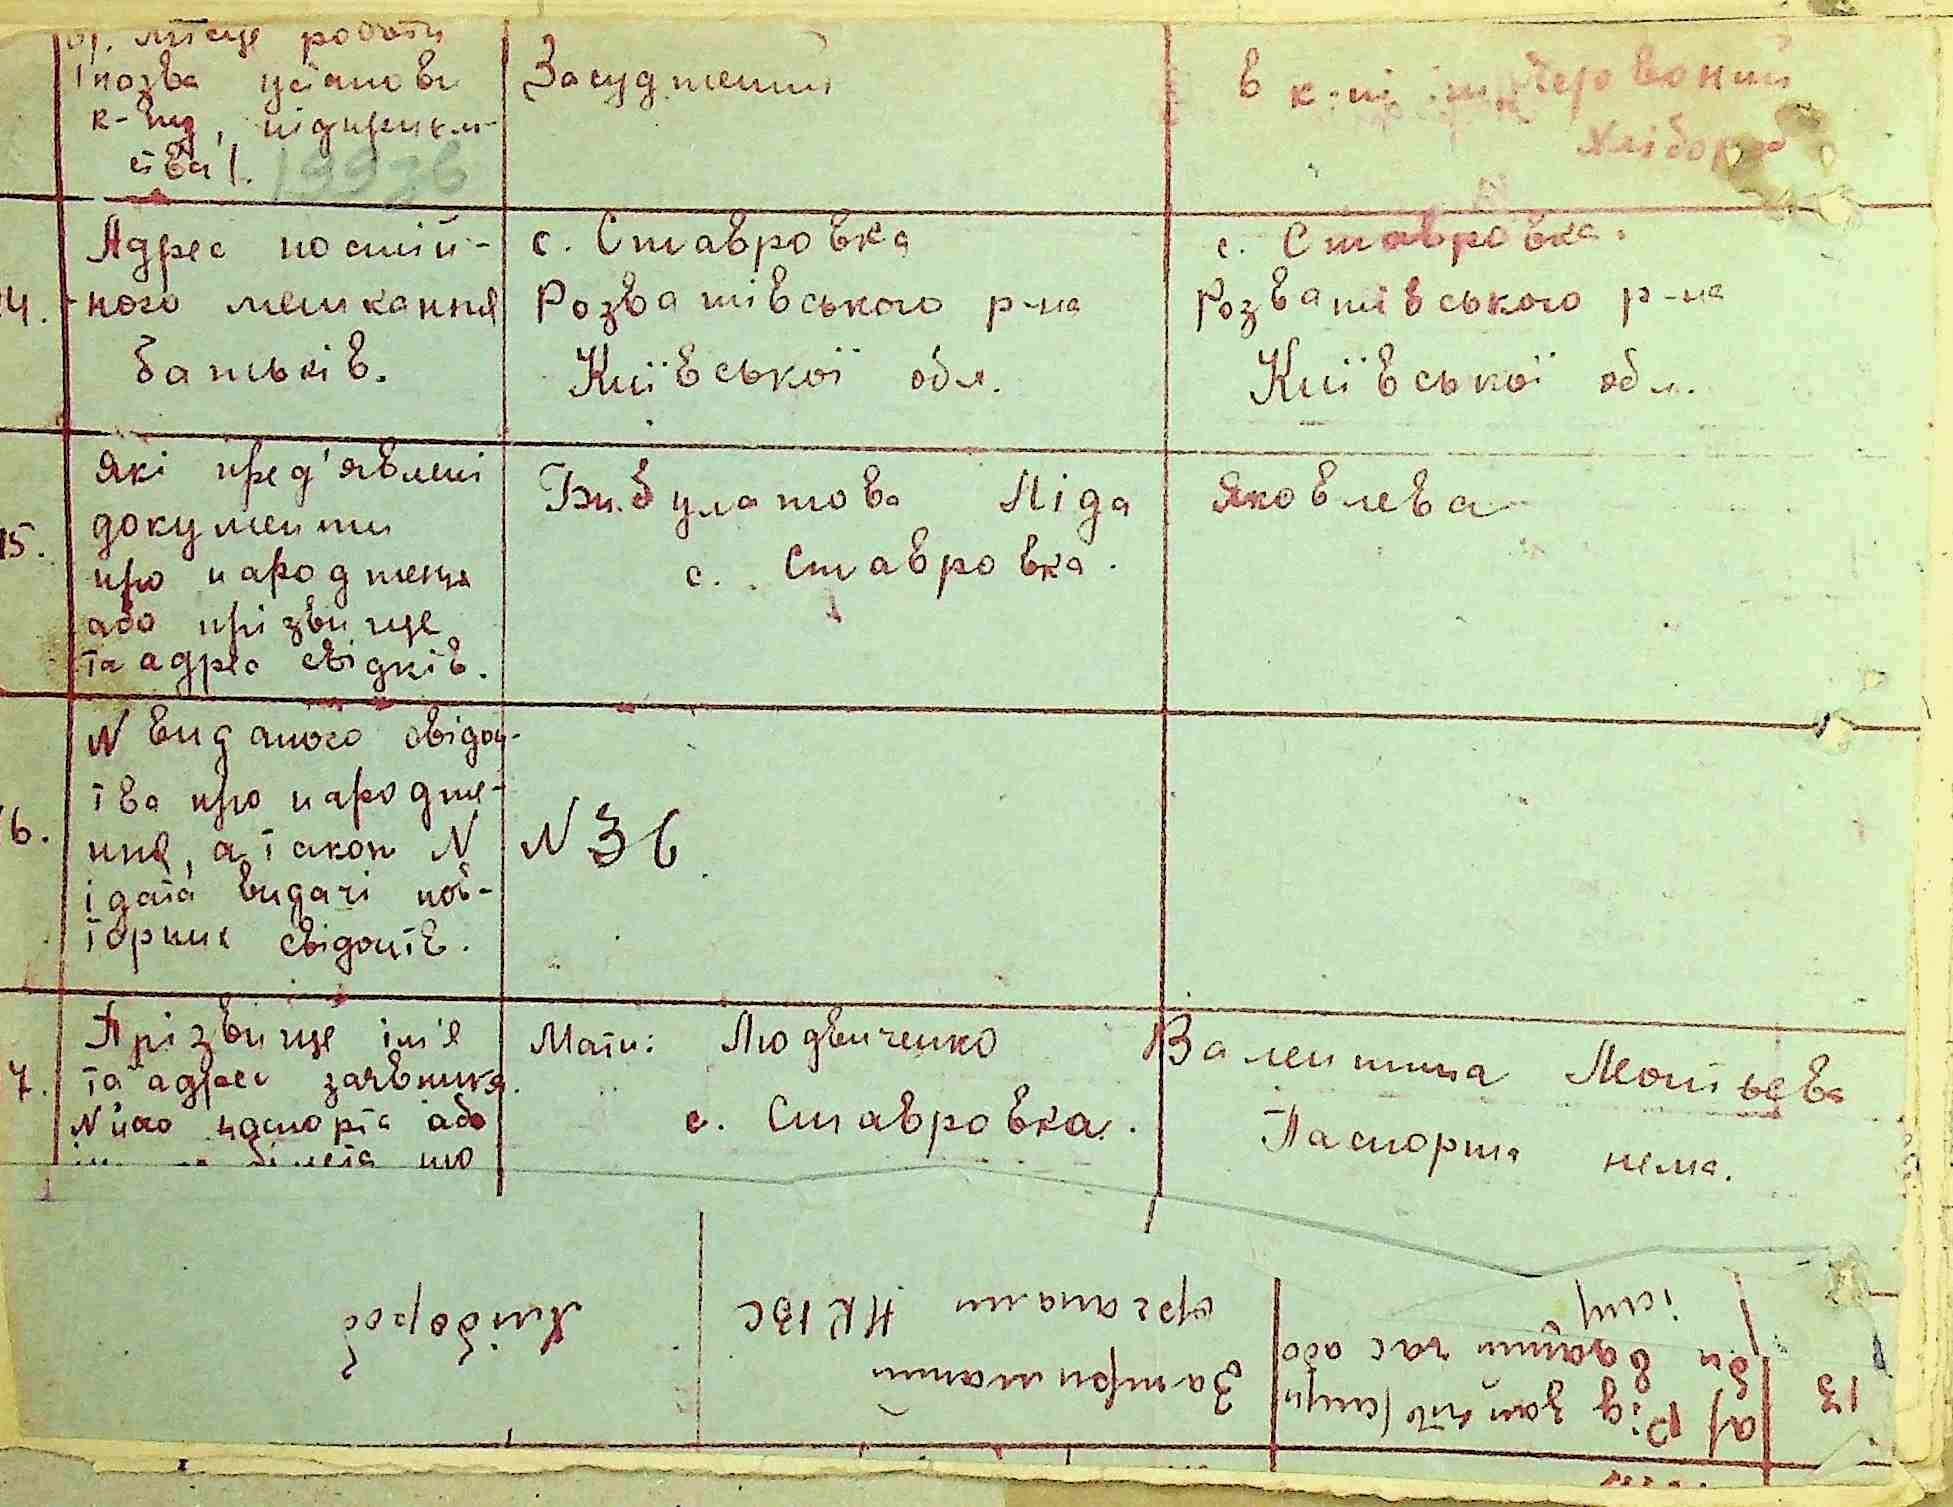 б). місце роботи
/назва установи
к-пу, підприєм-
ства/.
Засуджений
в к-пі ім. Червоний
хлібороб
14.
Адрес постій-
ного мешкання
батьків.
с. Ставровка
Розважівського р-на
Київської обл.
с. Ставровка.
Розважівського р-на
Київської обл.
15.
Які пред'явлені
документи
про народження
або прізвище
та адрес свідків.
Бибулатова Ліда
с. Ставровка.
Яковлева
16.
N виданого свідоц-
тва про народже-
ння, а також N
і дата видачі пов-
торних свідоцтв.
N 36
7.
Прізвище ім'я
та адрес заявника
N його паспорта або
білета що
Мати: Людвиченко
с. Ставровка.
Валентина Мотьева
Паспорта нема.
13
а/ Рід занять (служ
би в даний час або
Затриманий
органами НКВС
Хлібороб